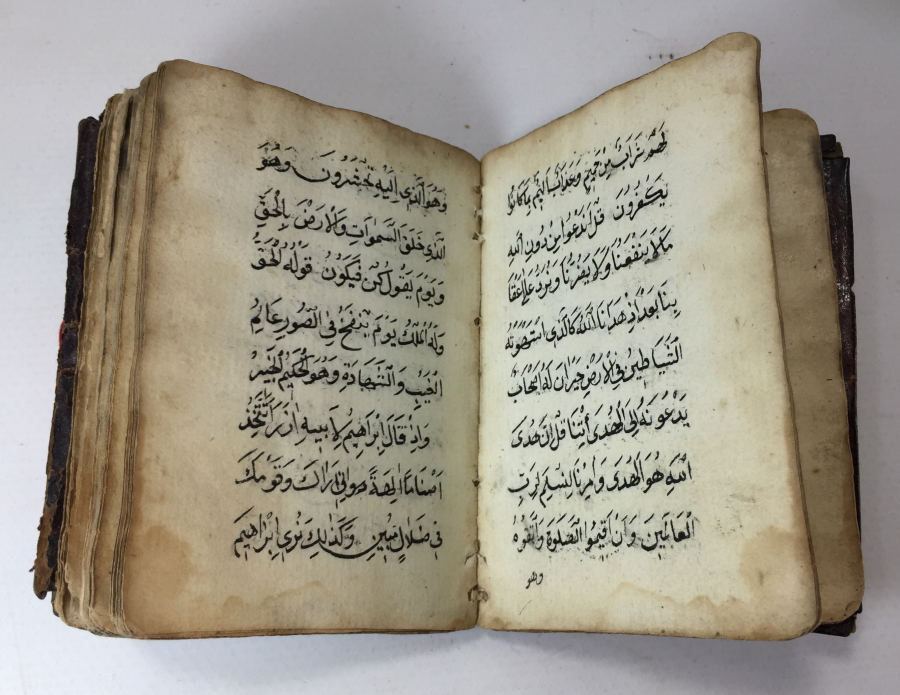 لَهُمْ شَرَابٌ مِنْ حَمِيمٍ وَعَذَابٌ أَلِيمٌ بِمَا كَانُوا
يَكْفُرُونَ قُلْ أَنَدْعُوا مِنْ دُونِ اللَّهِ
مَا لَا يَنْفَعُنَا وَلَا يَضُرُّنَا وَنُرَدُّ عَلَى أَعْقَا
بِنَا بَعْدَ إِذْ هَدَانَا اللَّهُ كَالَّذِي اسْتَهْوَتْهُ
الشَّيَاطِينُ فِي الْأَرْضِ حَيْرَانَ لَهُ أَصْحَابٌ
يَدْعُونَهُ إِلَى الْهُدَى ائْتِنَا قُلْ إِنَّ هُدَى
اللَّهِ هُوَ الْهُدَى وَأُمِرْنَا لِنُسْلِمَ لِرَبِّ
الْعَالَمِينَ وَأَنْ أَقِيمُوا الصَّلَوةَ وَاتَّقُوهُ
وهو
وَهُوَ الَّذِي إِلَيْهِ تُحْشَرُونَ وَهُوَ
الَّذِي خَلَقَ السَّمٰوَاتِ وَالْأَرْضَ بِالْحَقِّ
وَيَوْمَ يَقُولُ كُنْ فَيَكُونُ قَوْلُهُ الْحَقُّ
وَلَهُ الْمُلْكُ يَوْمَ يُنْفَخُ فِي الصُّورِ عَالِمُ
الْغَيْبِ وَالشَّهَادَةِ وَهُوَ الْحَكِيمُ الْخَبِيرُ
وَإِذْ قَالَ إِبْرَاهِيمُ لِأَبِيهِ آزَرَ أَتَتَّخِذُ
أَصْنَامًا آلِهَةً إِنِّي أَرَاكَ وَقَوْمَكَ
فِي ضَلَالٍ مُبِينٍ وَكَذَلِكَ نُرِي إِبْرَاهِيمَ